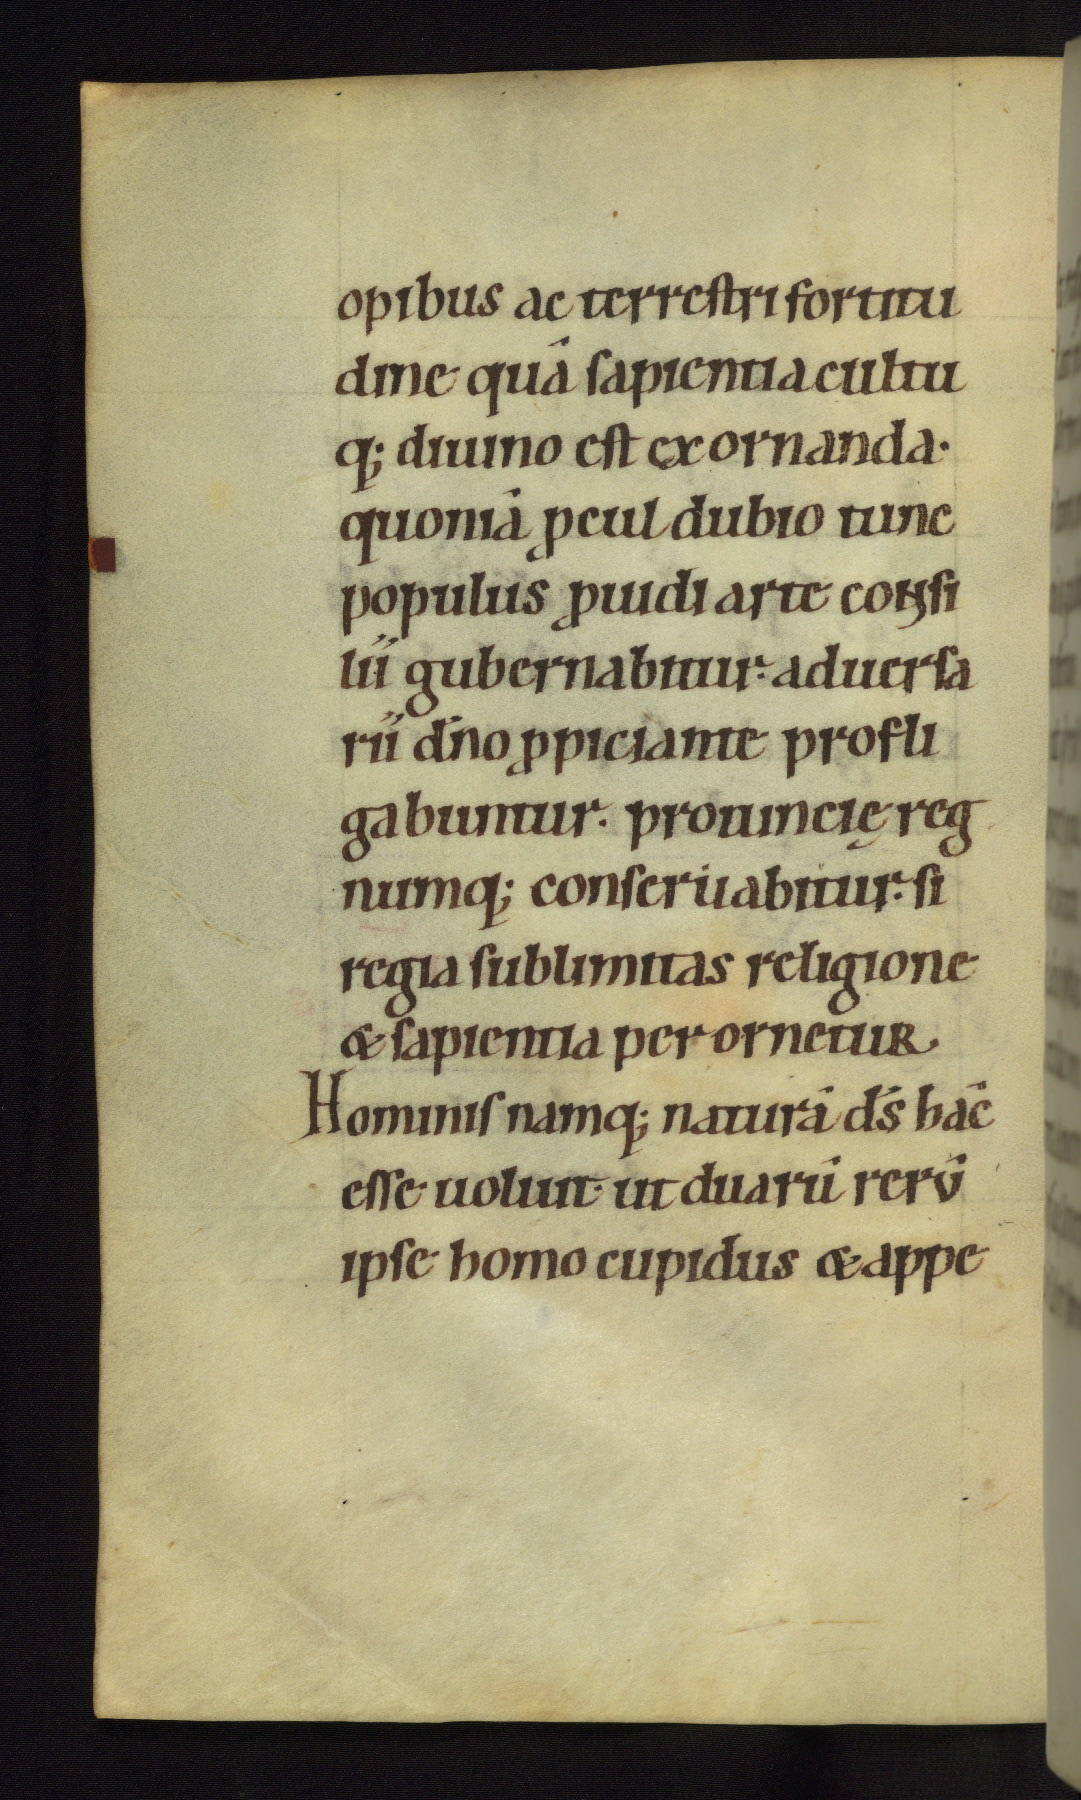 opibus ac terrestri fortitu
dine quā sapientia cultu
q; diuino est exornanda.
quoniā ꝓcul dubio tunc
populus ꝓuidi arte consi
lii gubernabitur. aduersa
rii dn̄o ꝓpiciante profli
gabuntur. prouincię reg
numq; conseruabitur. si
regia sublimitas religione
& sapientia perornetur.
Hominis namq; naturā ds̄ hāc
esse uoluit. ut duarū rerū
ipse homo cupidus & appe